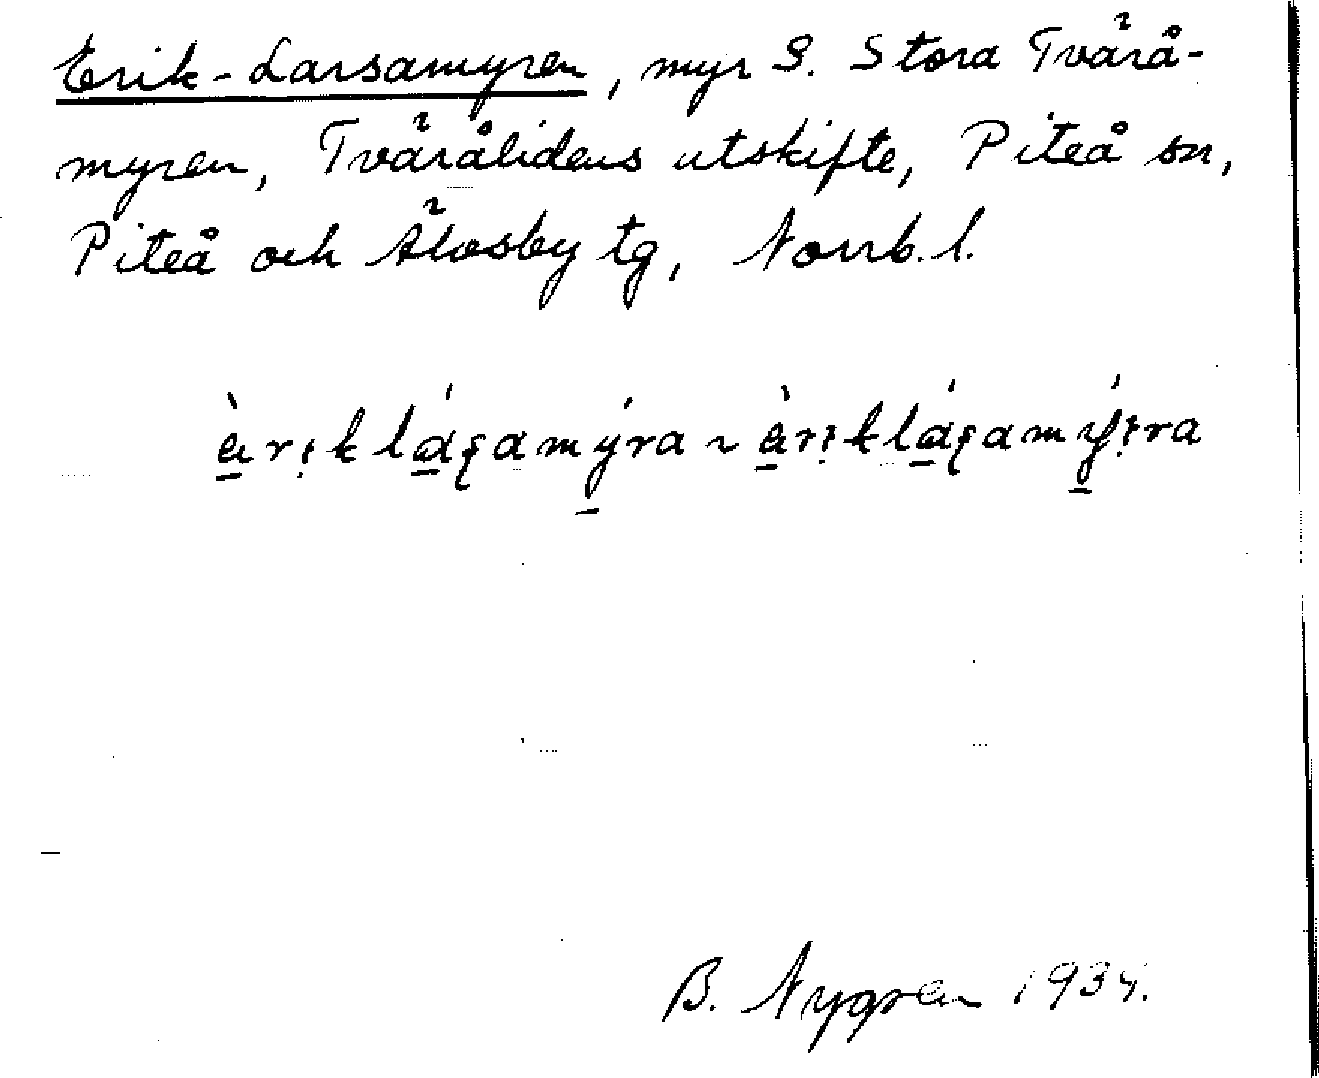 Erik-Larsamyren, myr S. Stora Tvärå-
myren, Tvärålidens utskifte, Piteå sn,
Piteå och Älvsby tg, Norrb. l.
B. Nygren 1934.